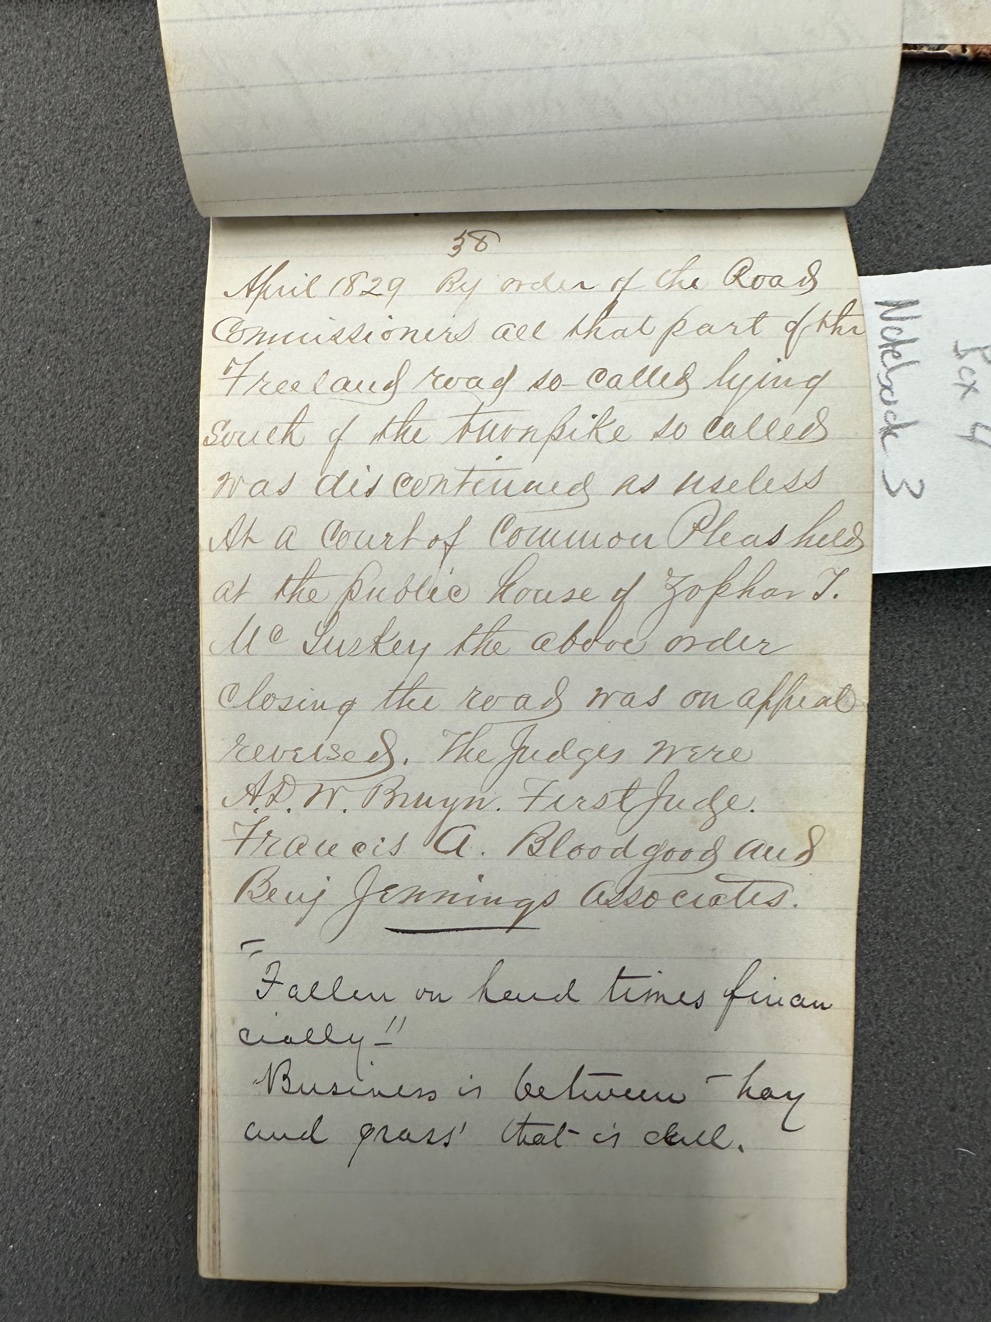 38
April 1829 By order of the Road
Commissioners all that part of the
Freeland road so-called lying
South of the turnpike so called
was discontinued as useless
At a Court of Common Pleas held
at the public house of Zophar T.
Mc Luskey the above order
closing the road was on appeal
reversed. The Judges were
A.D.W. Bruyn. First Judge.
Francis A. Bloodgood and
Benj Jennings associates.
"Fallen on hard times finan
cially!!
"Business is between "hay
and grass' that is dull.
Notebook 3
Box 4